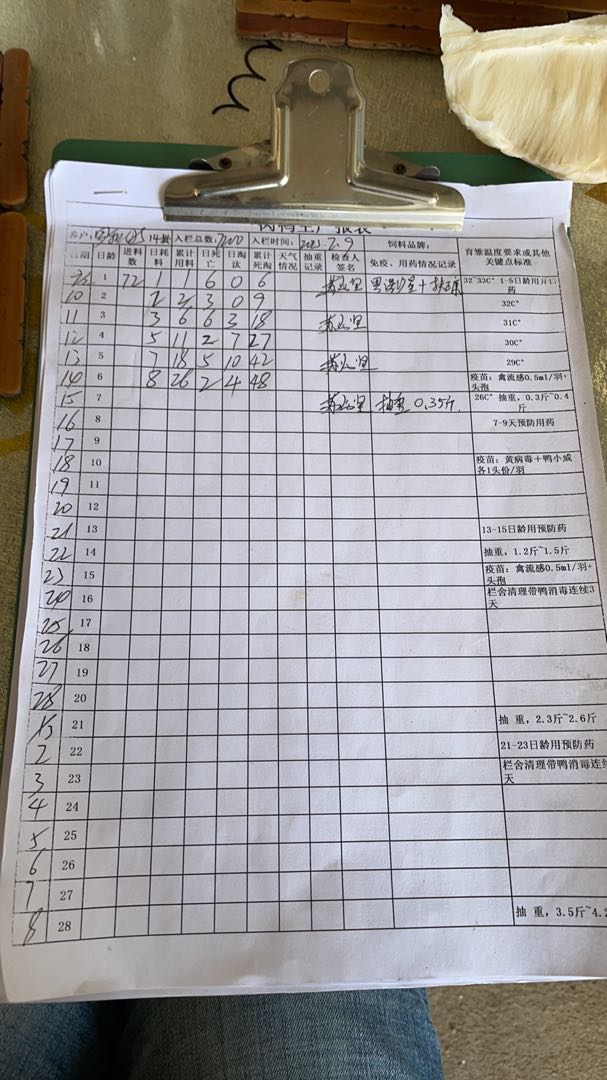 肉鸭生产报表
养户: 14批 入栏总数: 7200 入栏时间: 2023.2.9 饲料品牌: 育雏温度要求或其他关键点标准
日期 日龄 进料数 日耗料 累计用料 日死亡 日淘汰 累计死淘 天气情况 抽重记录 检查人签名 免疫、用药情况记录
1 72 1 1 6 0 6 32~33C° 1-5日龄用开口药
10 2 2 3 0 9 32C°
11 3 3 6 6 3 18 31C°
12 4 5 11 2 7 27 30C°
13 5 7 18 5 10 42 29C°
14 6 8 26 2 4 48 疫苗:禽流感0.5ml/羽+头孢
15 7 抽重 0.35斤. 26C° 抽重,0.3斤~0.4斤
16 8 7-9天预防用药
17 9
18 10 疫苗:黄病毒+鸭小威各1头份/羽
19 11
20 12
21 13 13-15日龄用预防药
22 14 抽重,1.2斤~1.5斤
23 15 疫苗:禽流感0.5ml/羽+头孢
16 栏舍清理带鸭消毒连续3天
25 17
26 18
27 19
28 20
21 抽 重,2.3斤~2.6斤
2 22 21-23日龄用预防药
3 23 栏舍清理带鸭消毒连续天
4 24
5 25
6 26
7 27
8 28 抽 重,3.5斤~4.2